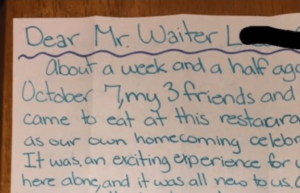 Dear Mr. Waiter
About a week and a half ago
October 7, my 3 friends and
came to eat at this restaurant
as our own homecoming celeb
It was, an exciting experience for
here alone, and it was all new to us,